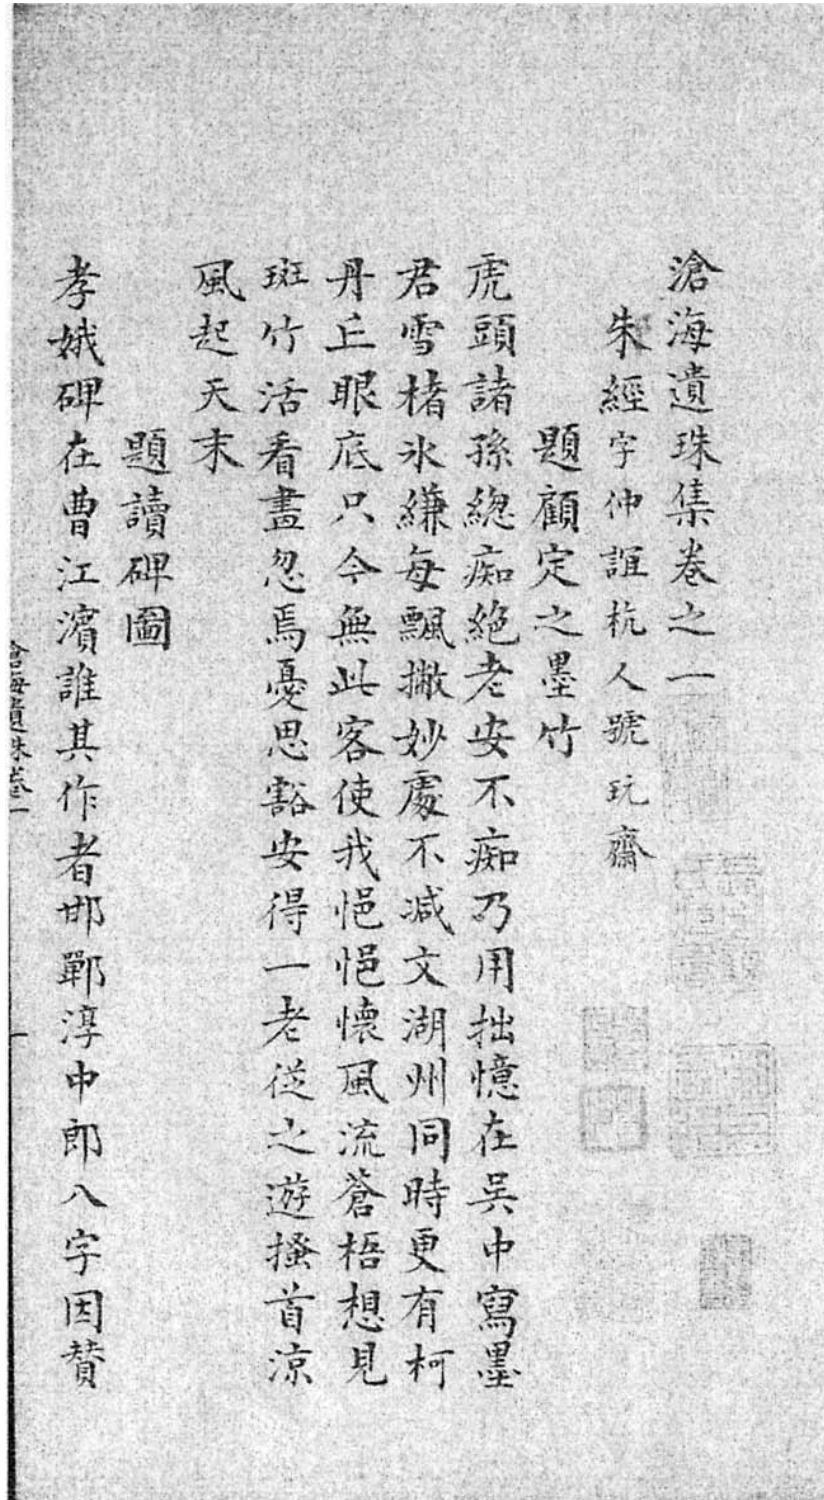 滄海遺珠集卷之一
朱經字仲誼杭人號玩齋
題顧定之墨竹
虎頭諸孫總痴絶老安不痴乃用拙憶在吳中寫墨
君雪楮氷縑每飄撇妙處不减文湖州同時更有柯
丹丘眼底只今無此客使我悒悒懷風流蒼梧想見
斑竹活看畫忽焉憂思豁安得一老從之遊搔首涼
風起天末
題讀碑圖
孝娥碑在曹江濱誰其作者邯鄲淳中郎八字因賛
滄海遺珠卷一
一